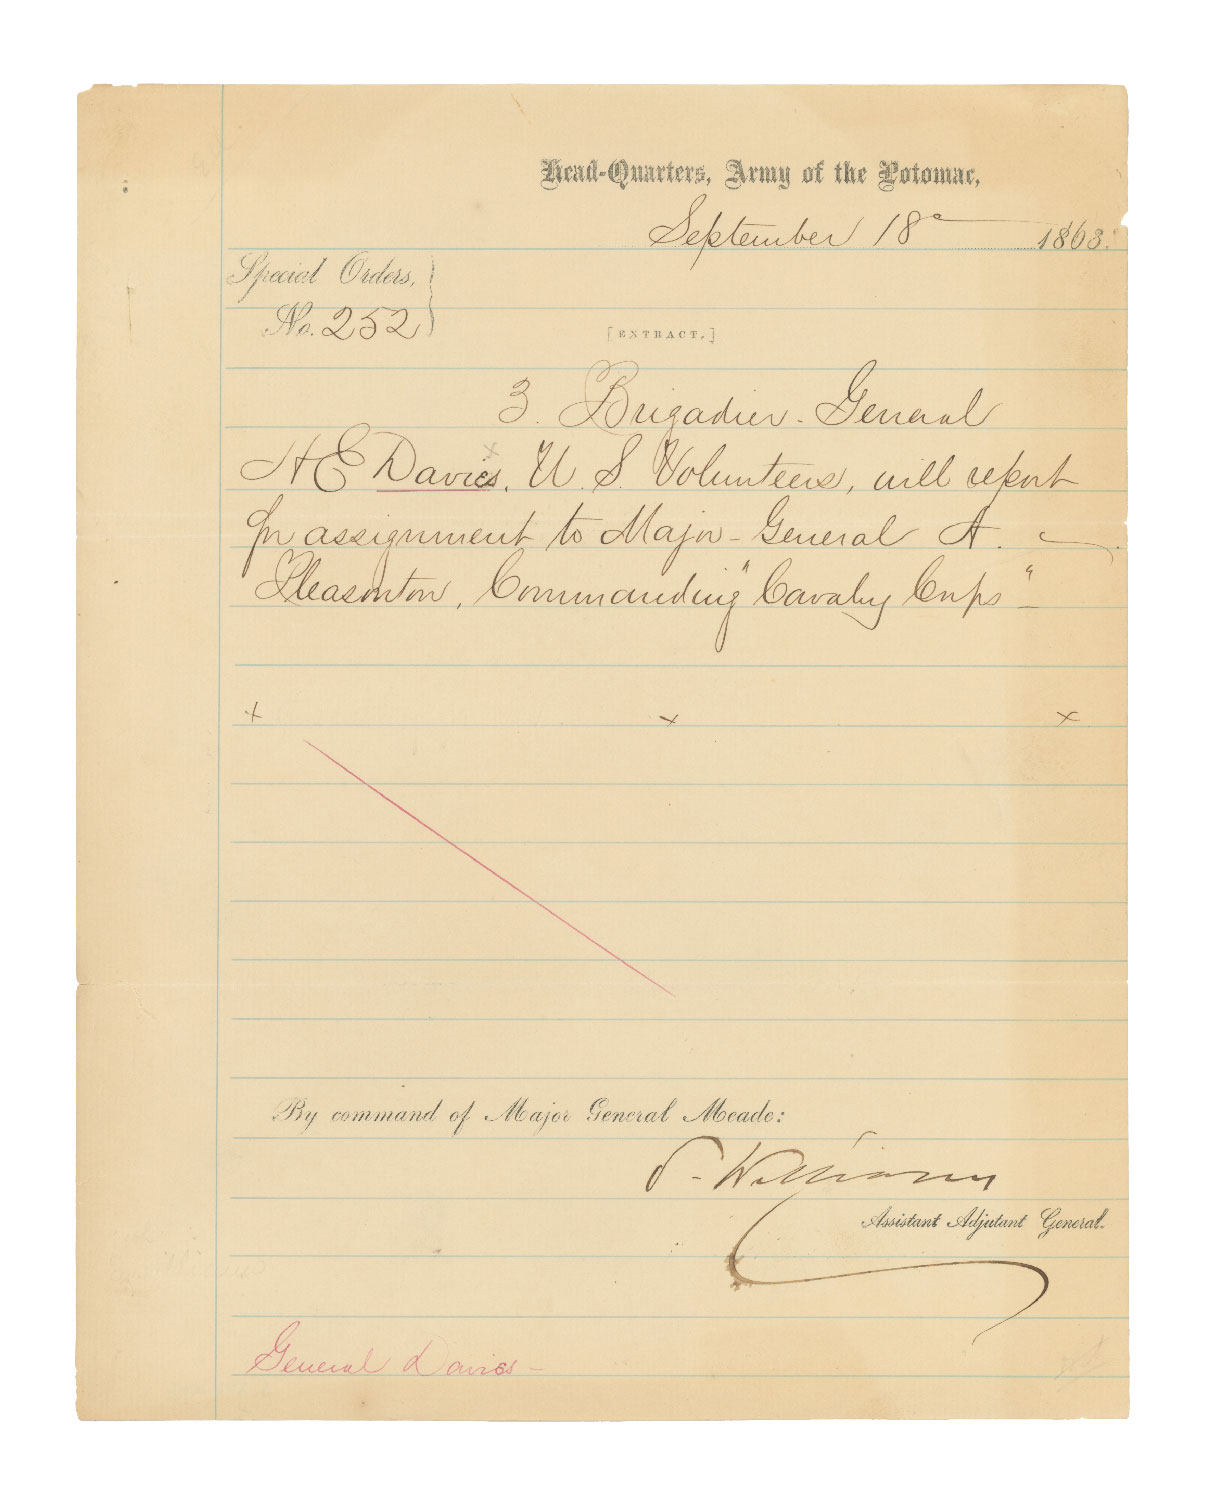 Head-Quarters, Army of the Potomac,
September 18" 1863.
Special Orders,
No. 252
[EXTRACT.]
3. Brigadier-General
H E Davies, U. S. Volunteers, will report
for assignment to Major-General A.
Pleasonton, Commanding "Cavalry Corps"-
x x x
By command of Major General Meade:
S. Williams
Assistant Adjutant General.
General Davies-